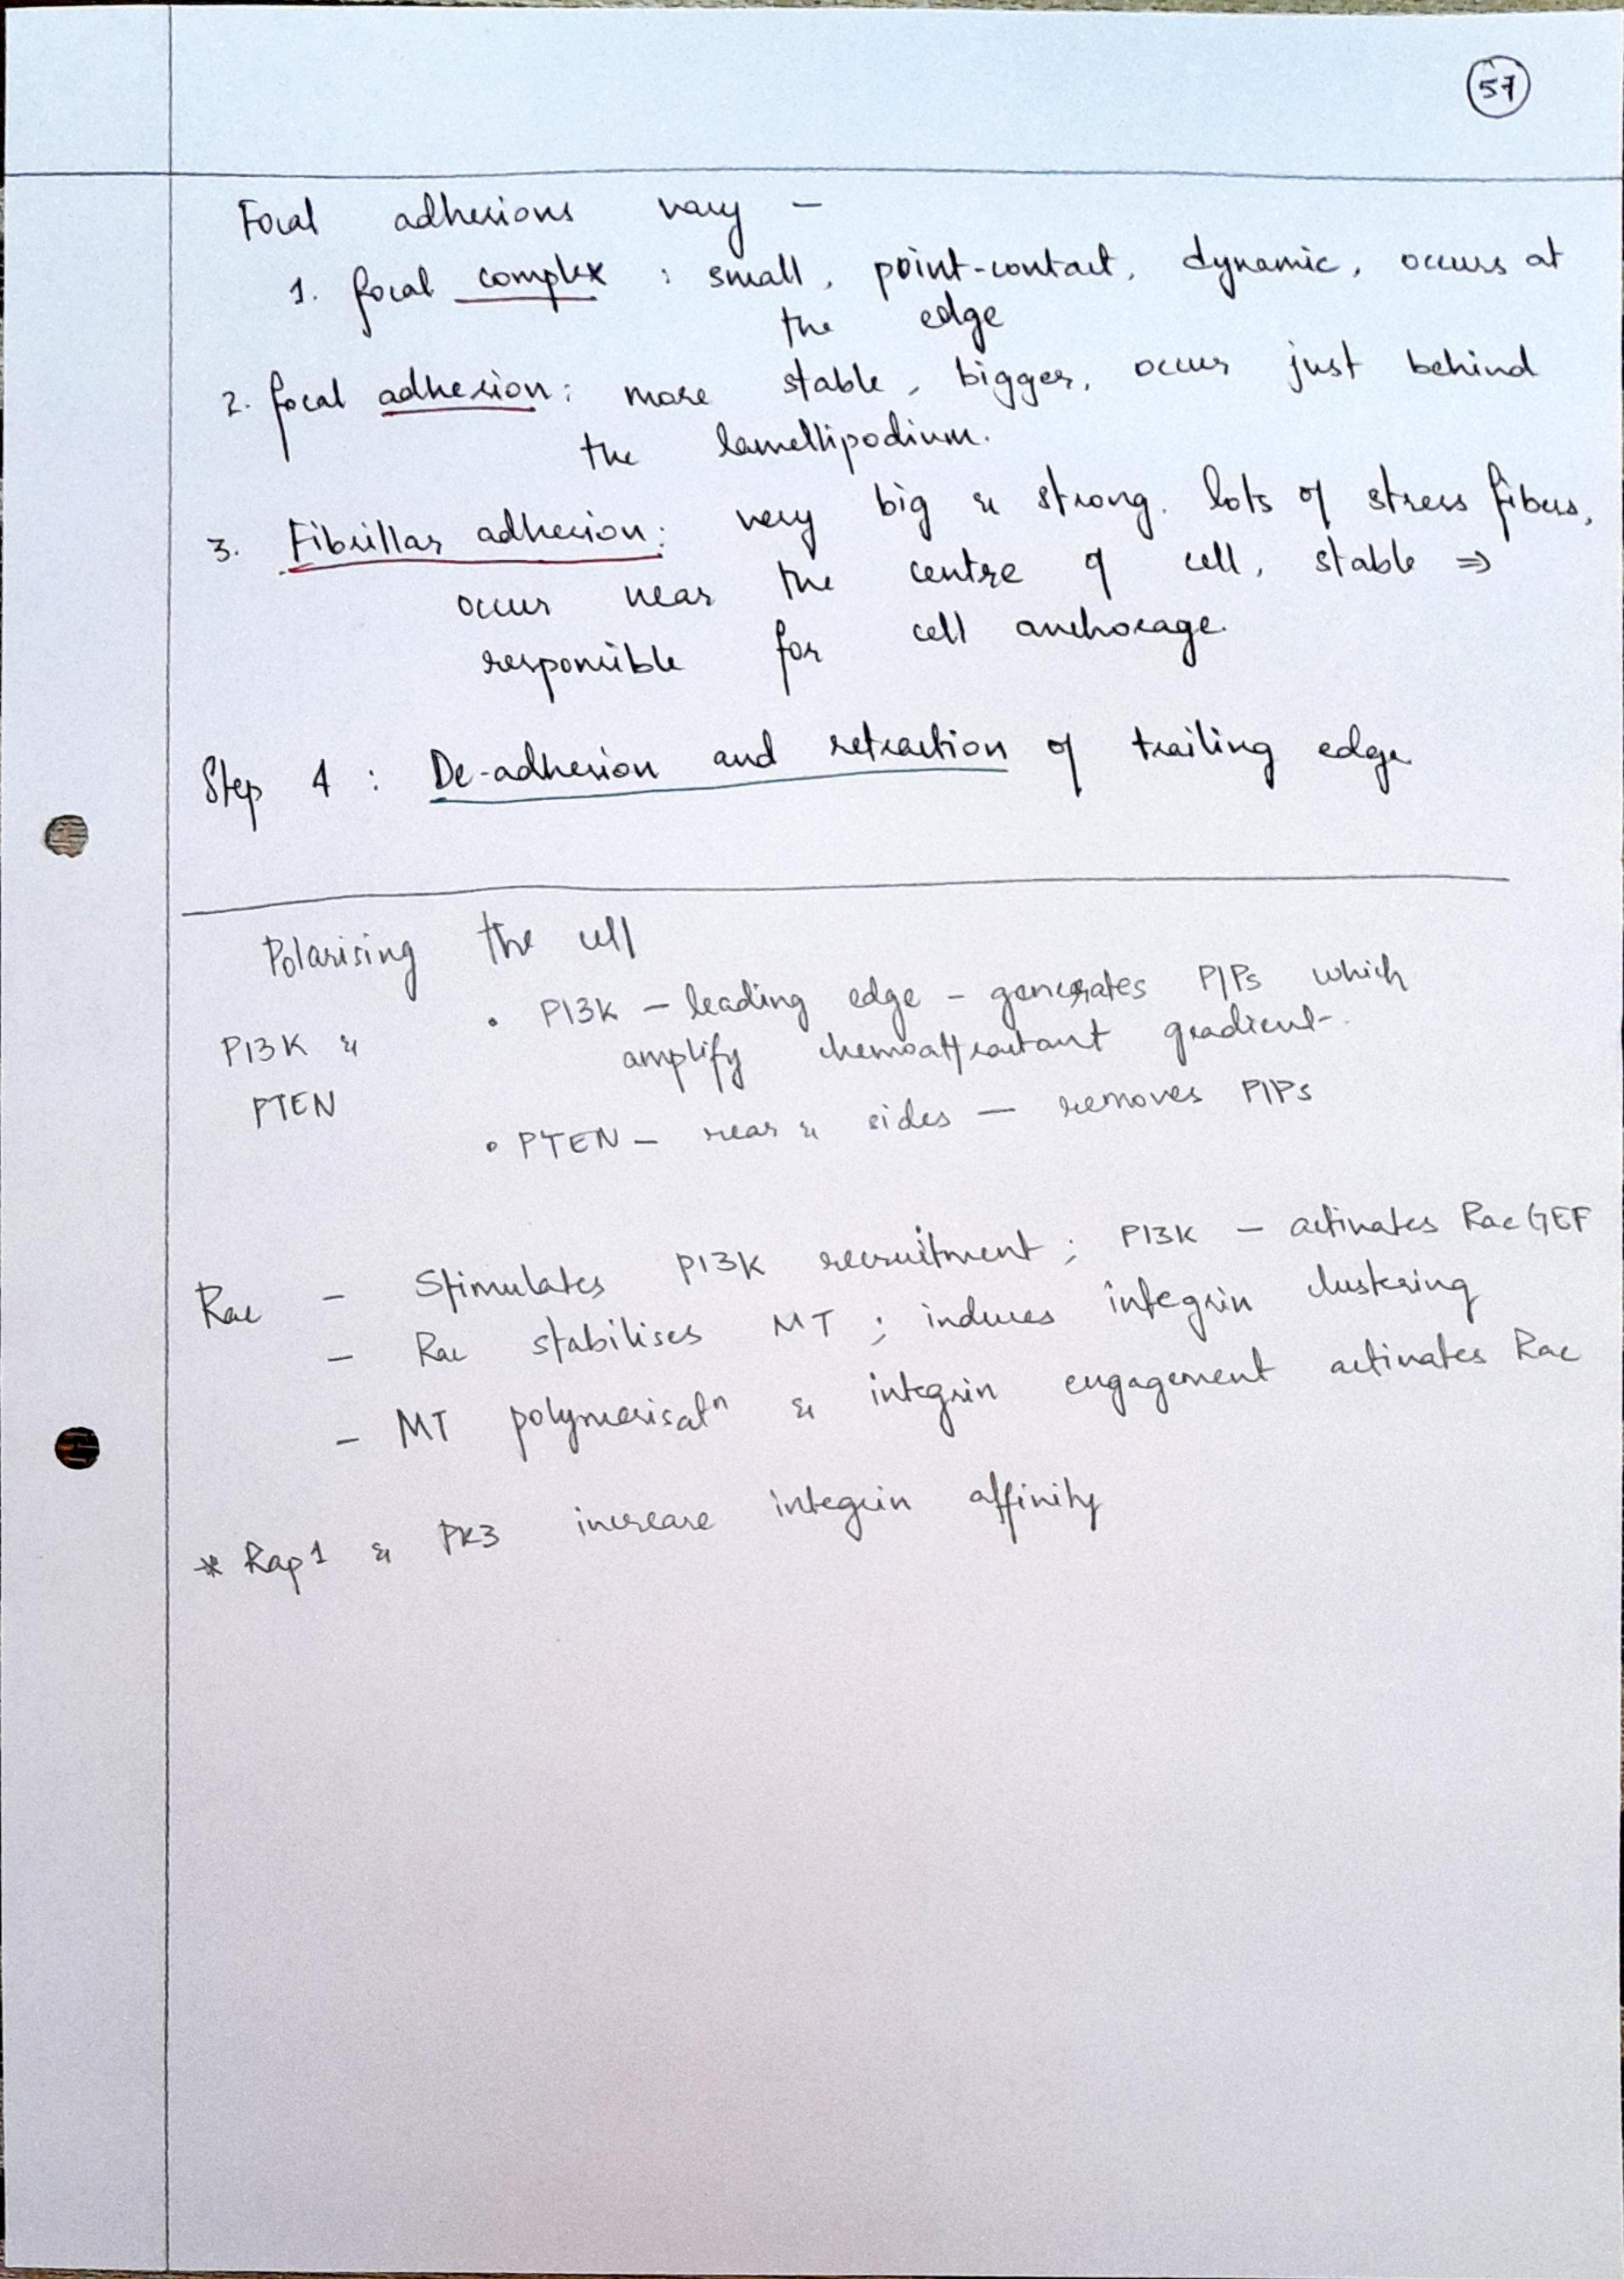 57
Focal adhesions vary –
1. focal complex : small, point-contact, dynamic, occurs at
the edge
2. focal adhesion: more stable, bigger, occur just behind
the lamellipodium.
3. Fibrillar adhesion: very big & strong. lots of stress fibers,
occur near the centre of cell, stable ⇒
responsible for cell anchorage.
Step 4 : De-adhesion and retraction of trailing edge
Polarising the cell
PI3K &
PTEN
• PI3K – leading edge – generates PIPs which
amplify chemoattractant gradient.
• PTEN – rear & sides – removes PIPs
Rac – Stimulates PI3K recruitment ; PI3K – activates Rac GEF
– Rac stabilises MT ; induces integrin clustering
– MT polymerisatⁿ & integrin engagement activates Rac
* Rap1 & PK3 increase integrin affinity